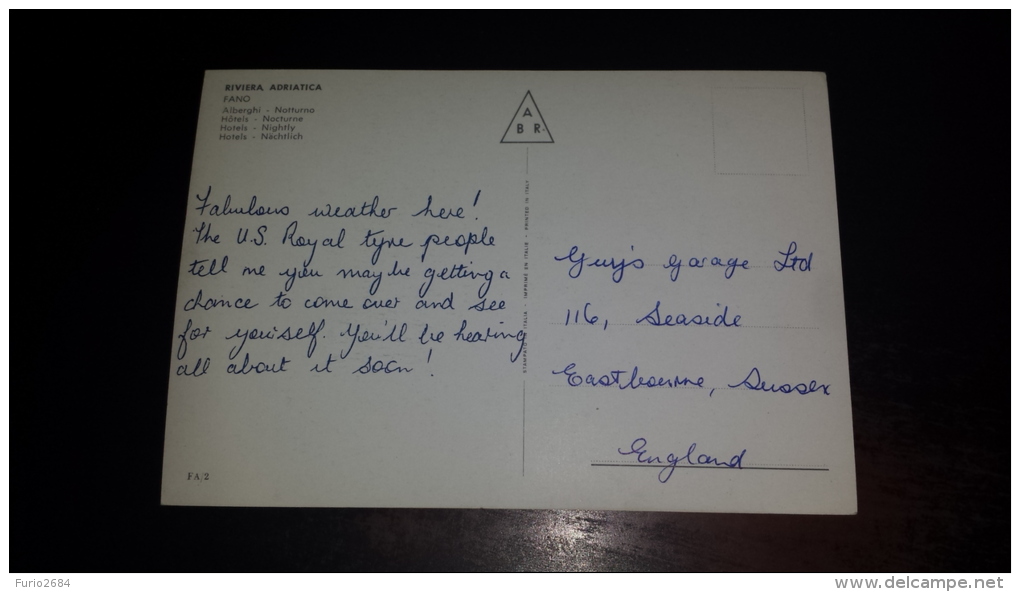 RIVIERA ADRIATICA
FANO
Alberghi - Notturno
Hôtels - Nocturne
Hotels - Nightly
Hotels - Nächtlich
A
B R.
Fabulous weather here!
The U.S. Royal tyre people
tell me you may be getting a
chance to come over and see
for yourself. You'll be hearing
all about it soon!
STAMPATO IN ITALIA - IMPRIMÉ EN ITALIE - PRINTED IN ITALY
Guy's Garage Ltd
116, Seaside
Eastbourne, Sussex
England
FA/2
Furio2684
www.delcampe.net